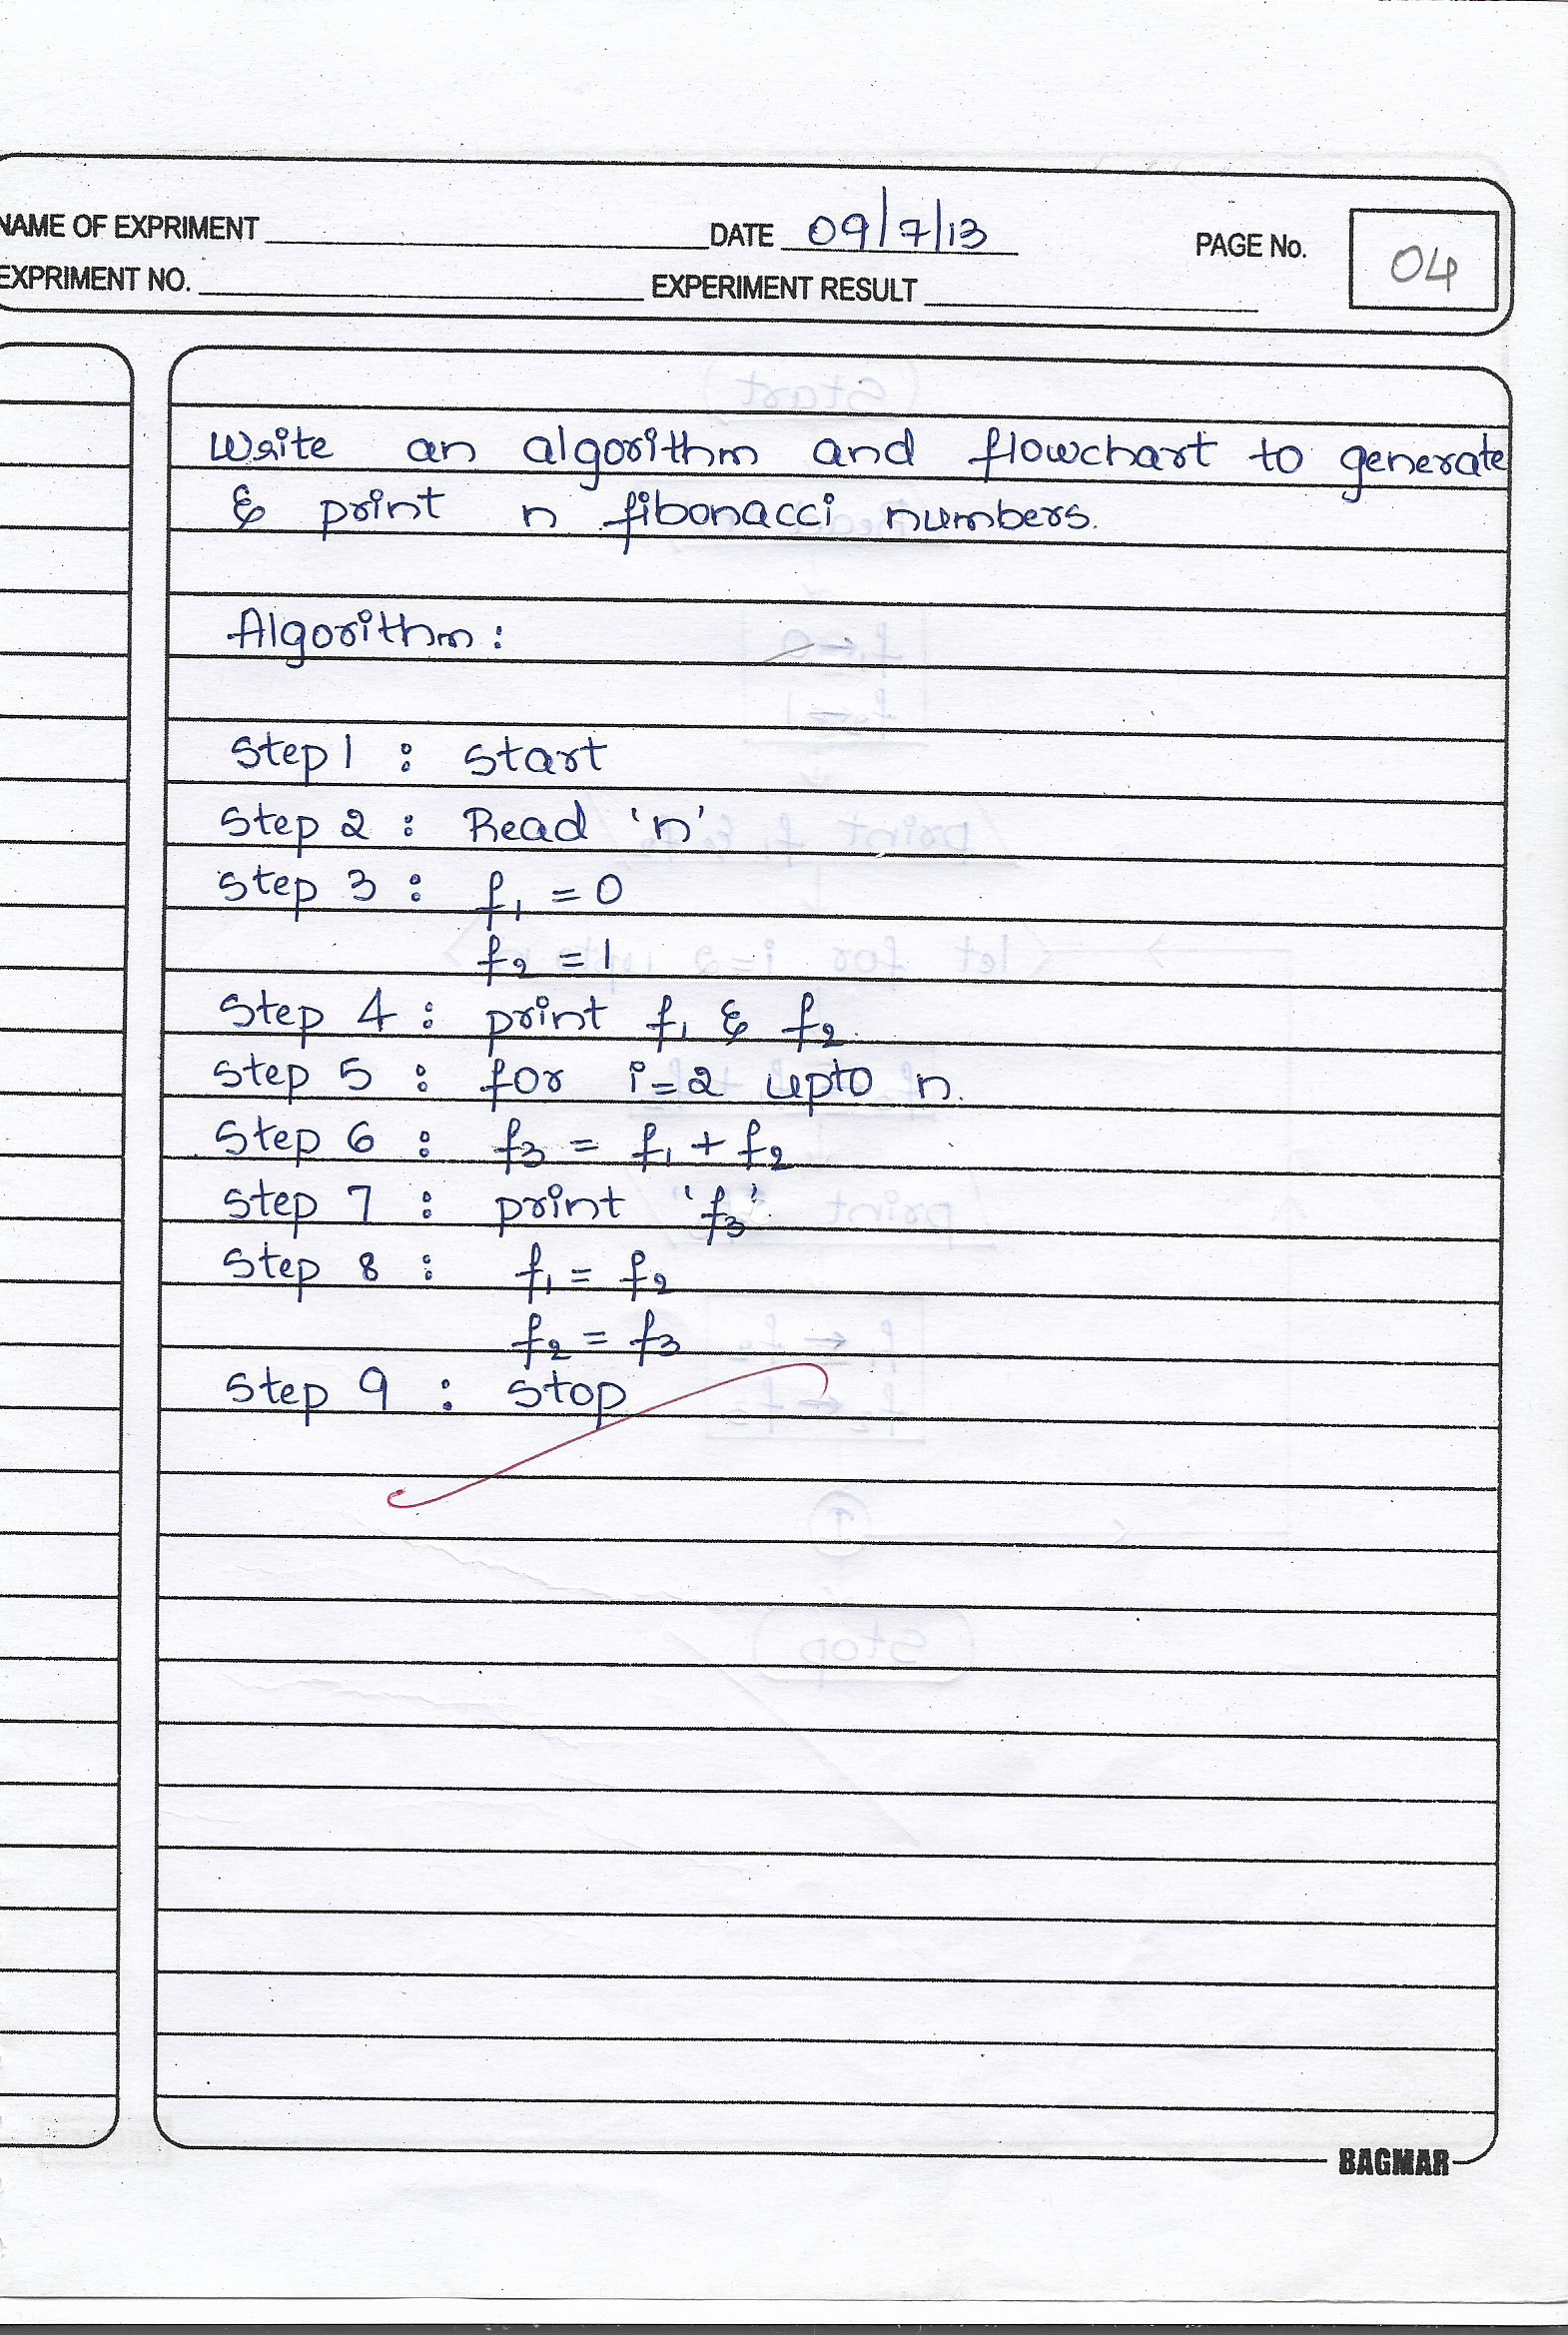 NAME OF EXPRIMENT DATE 09/7/13 PAGE No. 04
EXPRIMENT NO. EXPERIMENT RESULT
Write an algorithm and flowchart to generate
& print n fibonacci numbers.
Algorithm:
Step 1 : Start
Step 2 : Read 'n'
Step 3 : f₁ = 0
f₂ = 1
Step 4 : print f₁ & f₂.
Step 5 : for i=2 upto n.
Step 6 : f₃ = f₁ + f₂
Step 7 : print 'f₃'.
Step 8 : f₁ = f₂
f₂ = f₃
Step 9 : Stop
BAGMAR